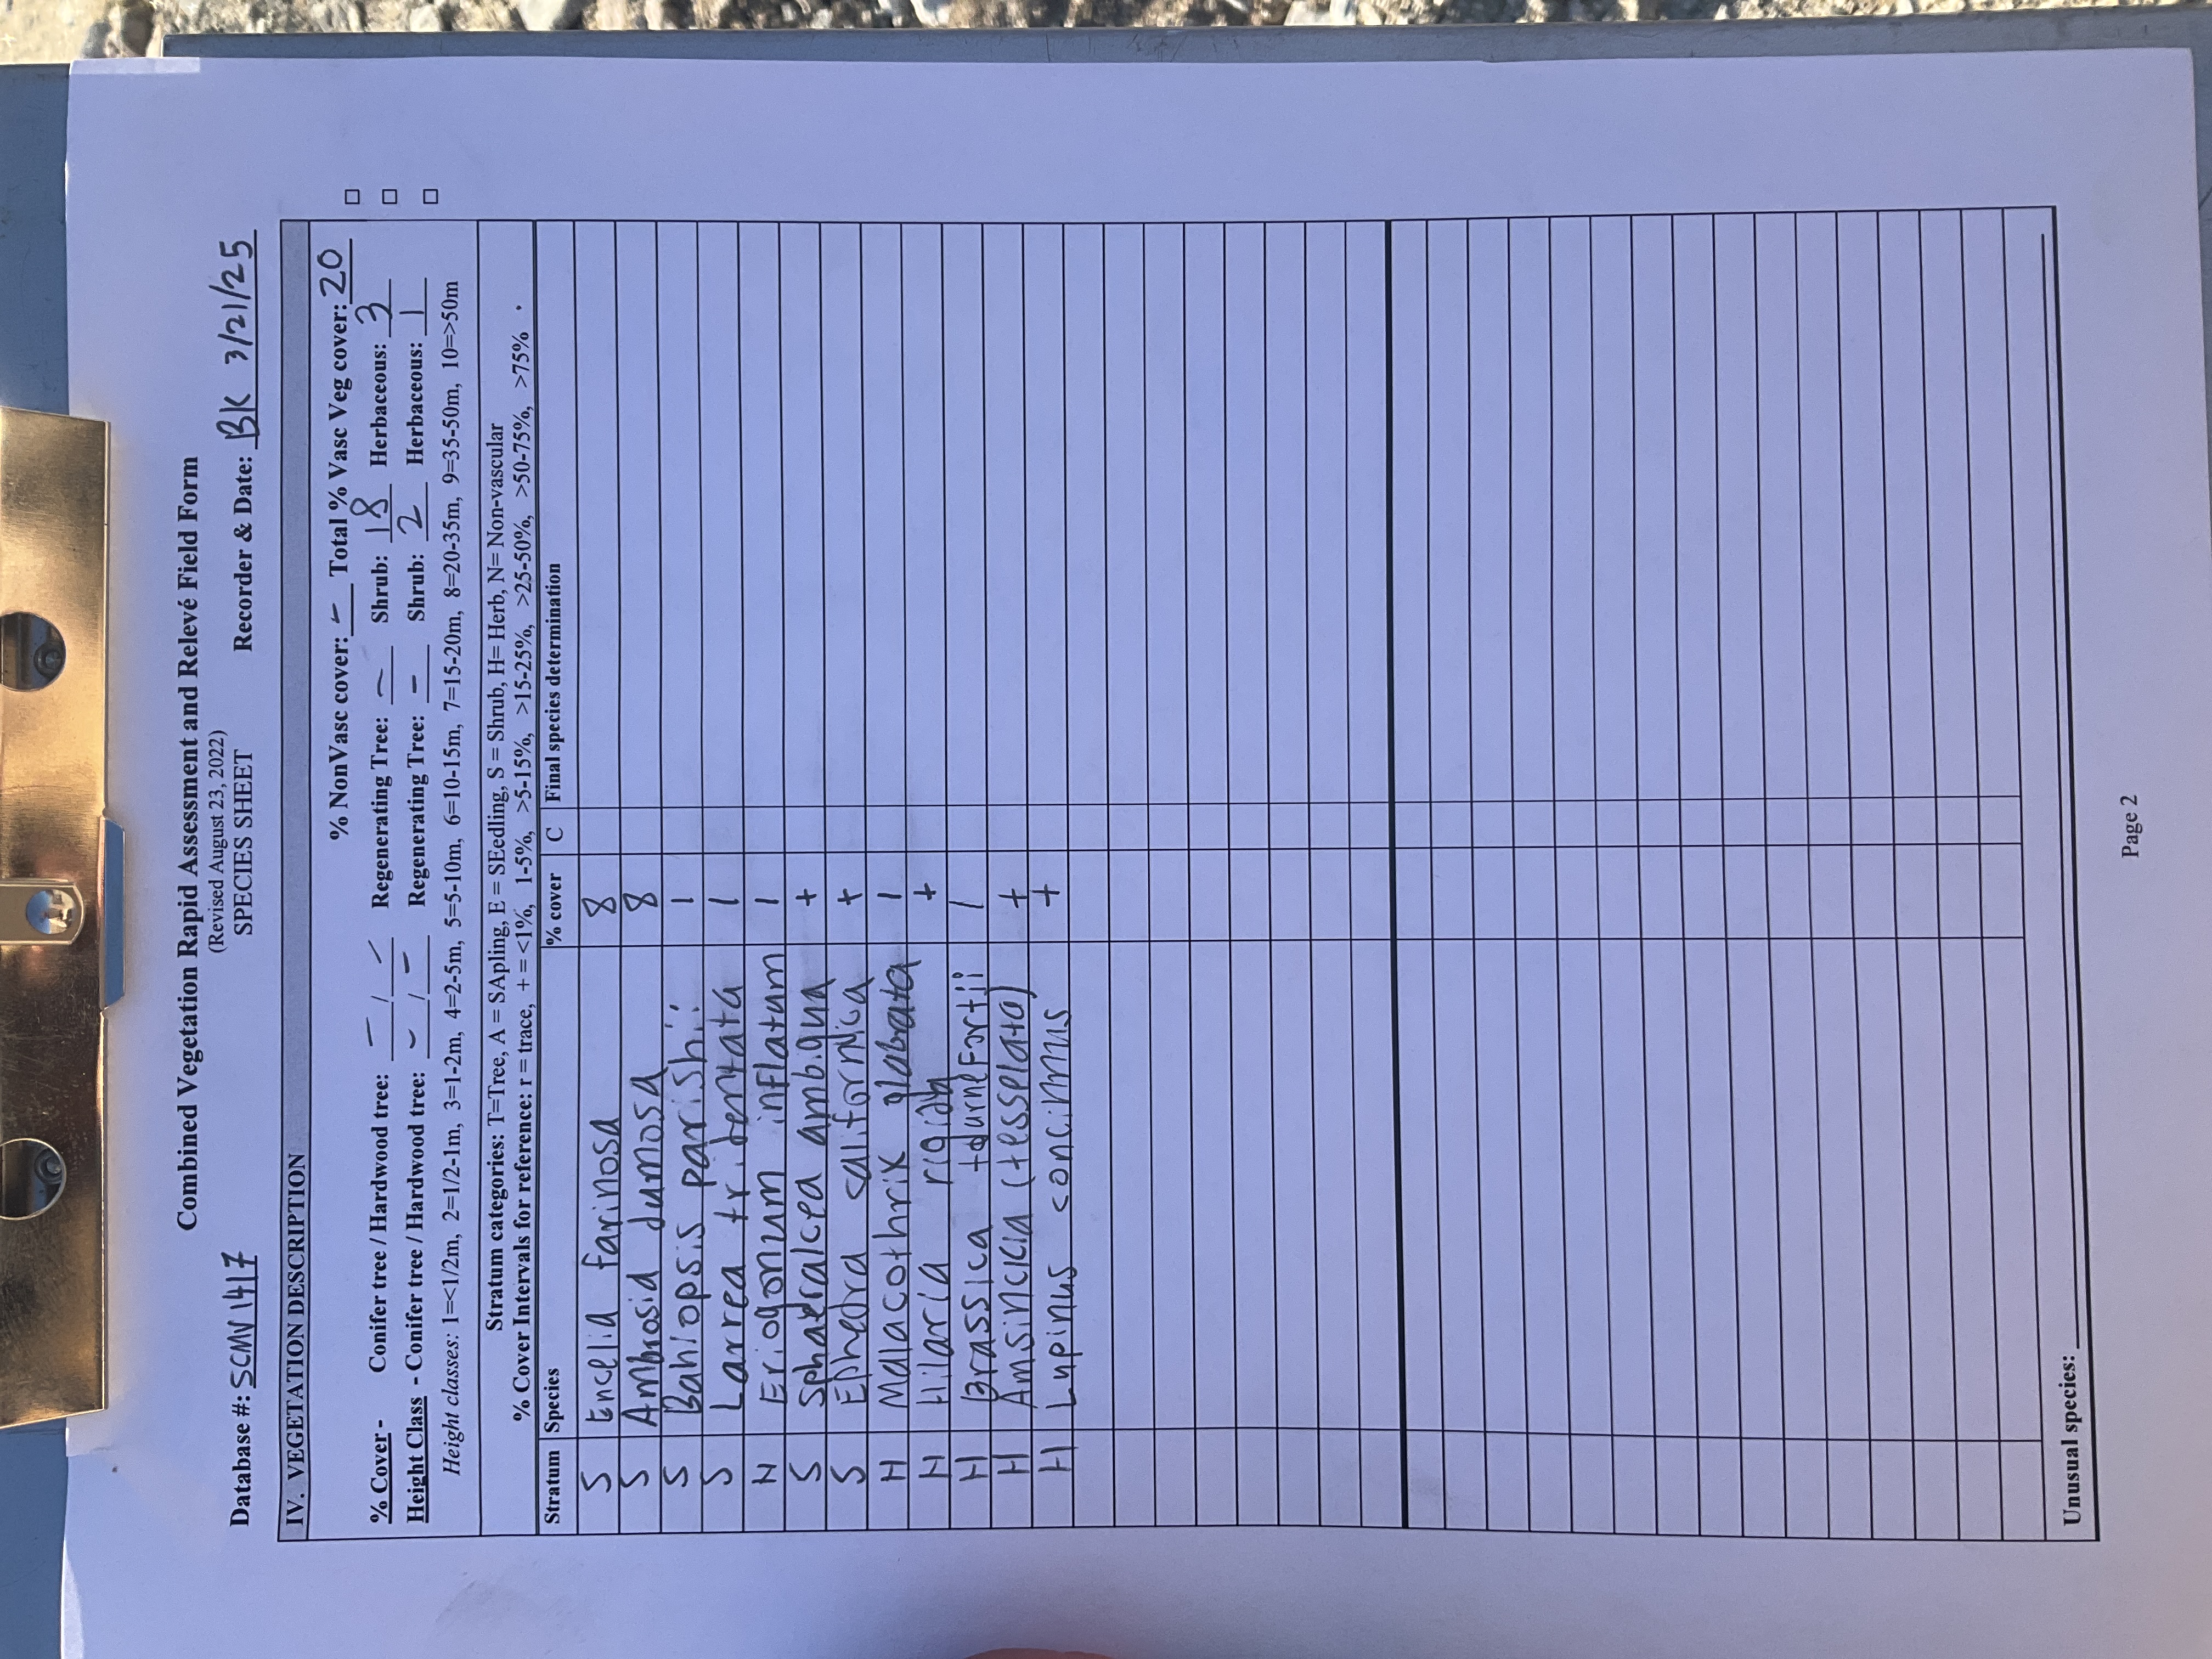 Combined Vegetation Rapid Assessment and Relevé Field Form
(Revised August 23, 2022)
SPECIES SHEET
Database #: SCMV1417 Recorder & Date: BK 3/21/25
IV. VEGETATION DESCRIPTION
% NonVasc cover: - Total % Vasc Veg cover: 20
% Cover - Conifer tree / Hardwood tree: - / - Regenerating Tree: - Shrub: 18 Herbaceous: 3
Height Class - Conifer tree / Hardwood tree: - / - Regenerating Tree: - Shrub: 2 Herbaceous: 1
Height classes: 1=<1/2m, 2=1/2-1m, 3=1-2m, 4=2-5m, 5=5-10m, 6=10-15m, 7=15-20m, 8=20-35m, 9=35-50m, 10=>50m
Stratum categories: T=Tree, A = SApling, E = SEedling, S = Shrub, H= Herb, N= Non-vascular
% Cover Intervals for reference: r = trace, + = <1%, 1-5%, >5-15%, >15-25%, >25-50%, >50-75%, >75%
Stratum Species % cover C Final species determination
S Encelia farinosa 8
S Ambrosia dumosa 8
S Bahiopsis parishii 1
S Larrea tridentata 1
H Eriogonum inflatum 1
S Sphaeralcea ambigua +
S Ephedra californica +
H Malacothrix glabrata 1
H Hilaria rigida +
H Brassica tournefortii 1
H Amsinckia (tesselata) +
H Lupinus concinnus +
Unusual species:
Page 2